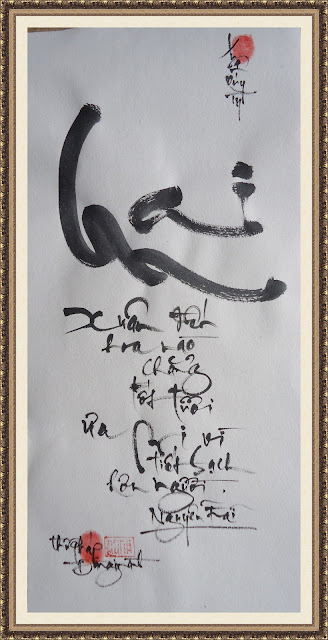 Mai
Xuân đến
hoa nào
chẳng
tốt tươi
ưa mi vì
tiết sạch
hơn người.
Nguyễn Trãi
thư pháp